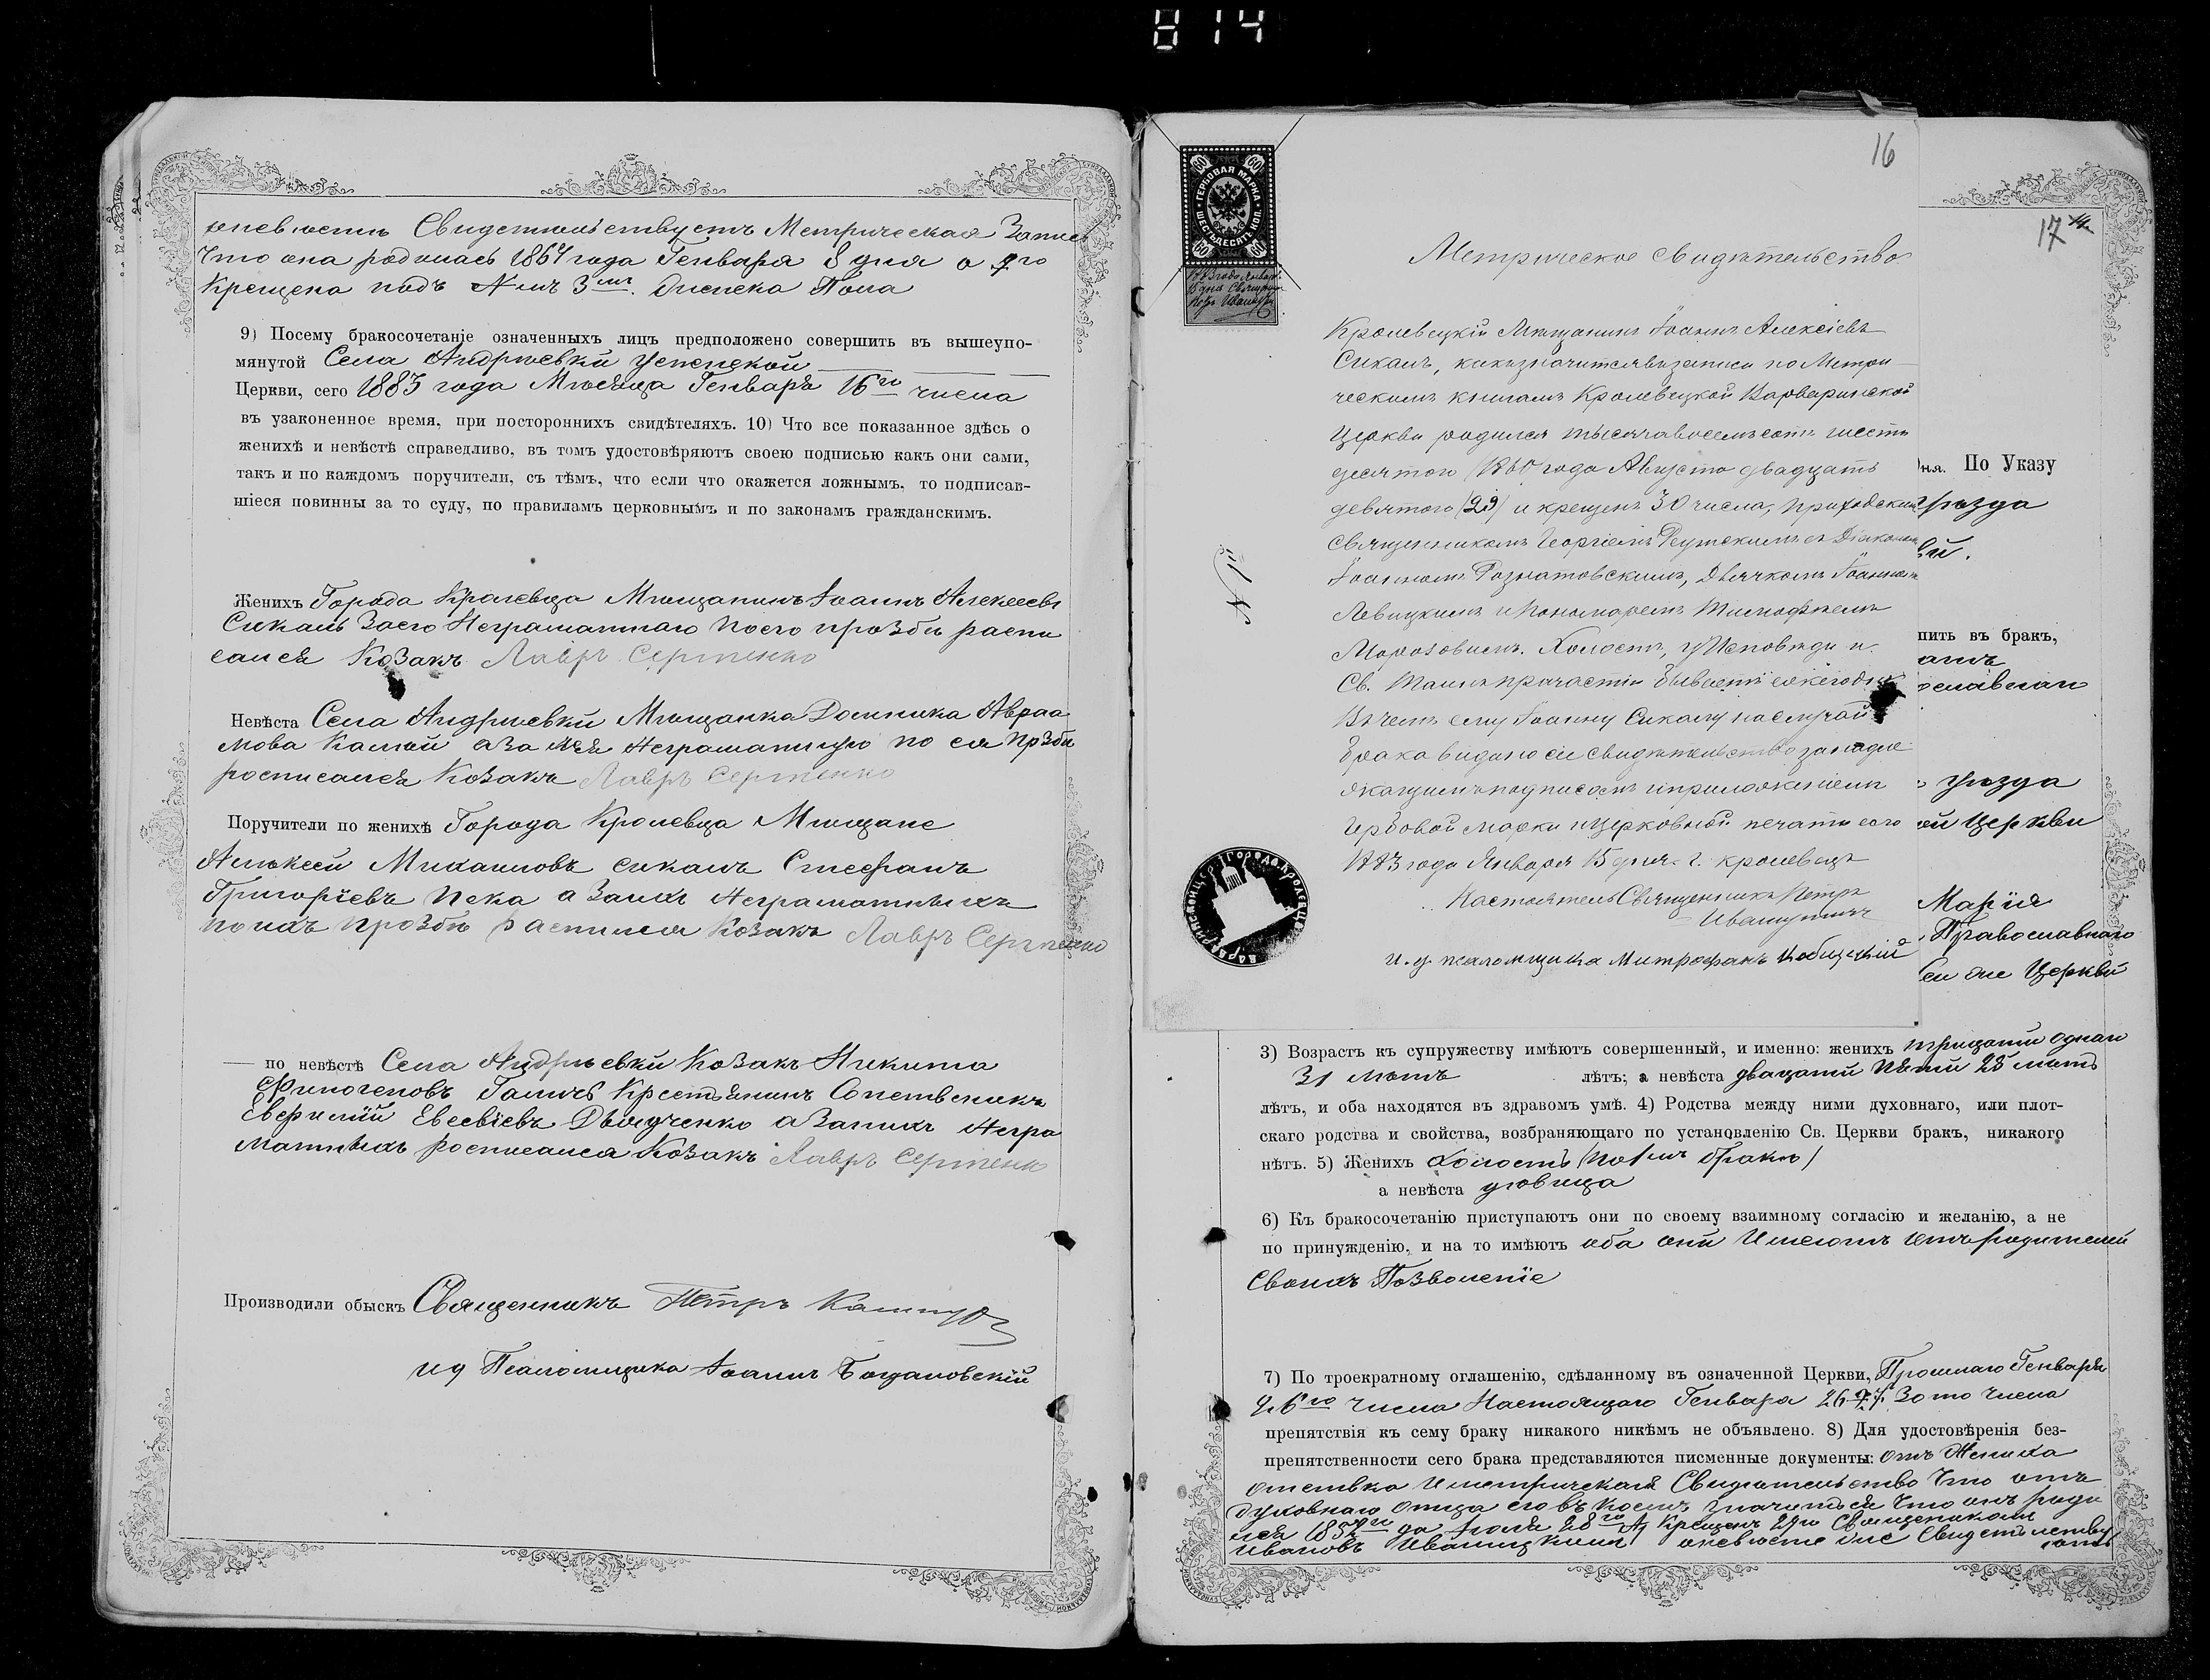 814
оневѣсти Свидетельствуетъ Метрическая Запись
Что она родилась 1864 года Генваря 8 дня а 9го
Крещена подъ №мъ 3мъ
9) Посему бракосочетаніе означенныхъ лицъ предположено совершить въ вышеупо-
мянутой Села Андриевки Успенской
Церкви, сего 1883 года Мѣсяца Генваря 16го числа
въ узаконенное время, при постороннихъ свидѣтеляхъ. 10) Что все показанное здѣсь о
женихѣ и невѣстѣ справедливо, въ томъ удостовѣряютъ своею подписью какъ они сами,
такъ и по каждомъ поручители, съ тѣмъ, что если что окажется ложнымъ, то подписав-
шіеся повинны за то суду, по правиламъ церковнымъ и по законамъ гражданскимъ.
Женихъ Города Кролевца Мѣщанинъ Іоаннъ Алексеевъ
Сикалъ Заего Неграматнаго поего прозби распи
сался Козакъ Лавръ Сергіенко
Невѣста Села Андриевки Мѣщанка Домника Авраа
мова аза нея Неграматную по ея прзби
росписался Козакъ Лавръ Сергіенко
Поручители по женихѣ Города Кролевца Мѣщане
Алѣксей Михаиловъ Сикалъ Стефанъ
Григоріевъ Пека а Заихъ Неграматныхъ
поихъ прозби Козакъ Лавръ Сергіенко
— по невѣстѣ Села Андриевки Козакъ Никита
Финогеновъ Крестьянинъ
Евсевіевъ а Заихъ Негра
матныхъ росписался Козакъ Лавръ Сергіенк
Производили обыскъ Священникъ Петръ
ид Псаломщика Іоаннъ Богдановскій
16
17
ГЕРБОВАЯ МАРКА
ШЕСТЬДЕСЯТЪ КОП.
60 60
60 60
Метрическое свидѣтельство
Кролевецкій Мѣщанинъ Іоаннъ Алексіевъ
Сикалъ, какъ значится въ записи по Метри-
ческимъ книгамъ Кролевецкой Варваринской
Церкви родился тысячавосемьсотъ шесть
десятого 1860 года Августа двадцать
девятого (29) и крещенъ 30 числа, приходскимъ
Священникомъ Георгіемъ съ Діакономъ
Іоанномъ Дьячкомъ Іоанномъ
Левицкимъ и Пономаремъ Тимофеемъ
Морозовымъ. Холостъ, у Исповѣди и
Св. Таинъ причастія бываетъ ежегодно
Въ чемъ ему Іоанну Сикалу на случай
брака выдано сіе свидѣтельство за надле
жащимъ подписомъ и приложеніемъ
Гербовой марки и Церковной печати сего
1883 года Января 15 дня. г. Кролевецъ
Настоятель Священникъ Петръ
и. д. псаломщика Митрофанъ
дня. По Указу
уѣзда
пить въ бракъ,
уѣзда
ой Церкви
Марія
Православнаго
Церкви
3) Возрастъ къ супружеству имѣютъ совершенный, и именно: женихъ тридцати однаи
31 лѣтъ лѣтъ; а невѣста двацати пяти 25 лѣтъ
лѣтъ, и оба находятся въ здравомъ умѣ. 4) Родства между ними духовнаго, или плот-
скаго родства и свойства, возбраняющаго по установленію Св. Церкви бракъ, никакого
нѣтъ. 5) Женихъ холостъ (по 1мъ бракѣ)
а невѣста удовица
6) Къ бракосочетанію приступаютъ они по своему взаимному согласію и желанію, а не
по принужденію, и на то имѣютъ оба они Имеютъ отъ родителей
Своихъ Позволеніе
7) По троекратному оглашенію, сдѣланному въ означенной Церкви, Прошлаго Генваря
26го числа Настоящаго Генваря 26 27 30 го числа
препятствія къ сему браку никакого никѣмъ не объявлено. 8) Для удостовѣренія без-
препятственности сего брака представляются писменные документы: отъ Жениха
Иметрическая Свидетельство что отъ
духовнаго отца его въ коемъ значится что онъ роди
лся 1852 го да Іюля 28 го А Крещенъ 29го Священикомъ
Ивановъ Иваницкимъ оневѣсте